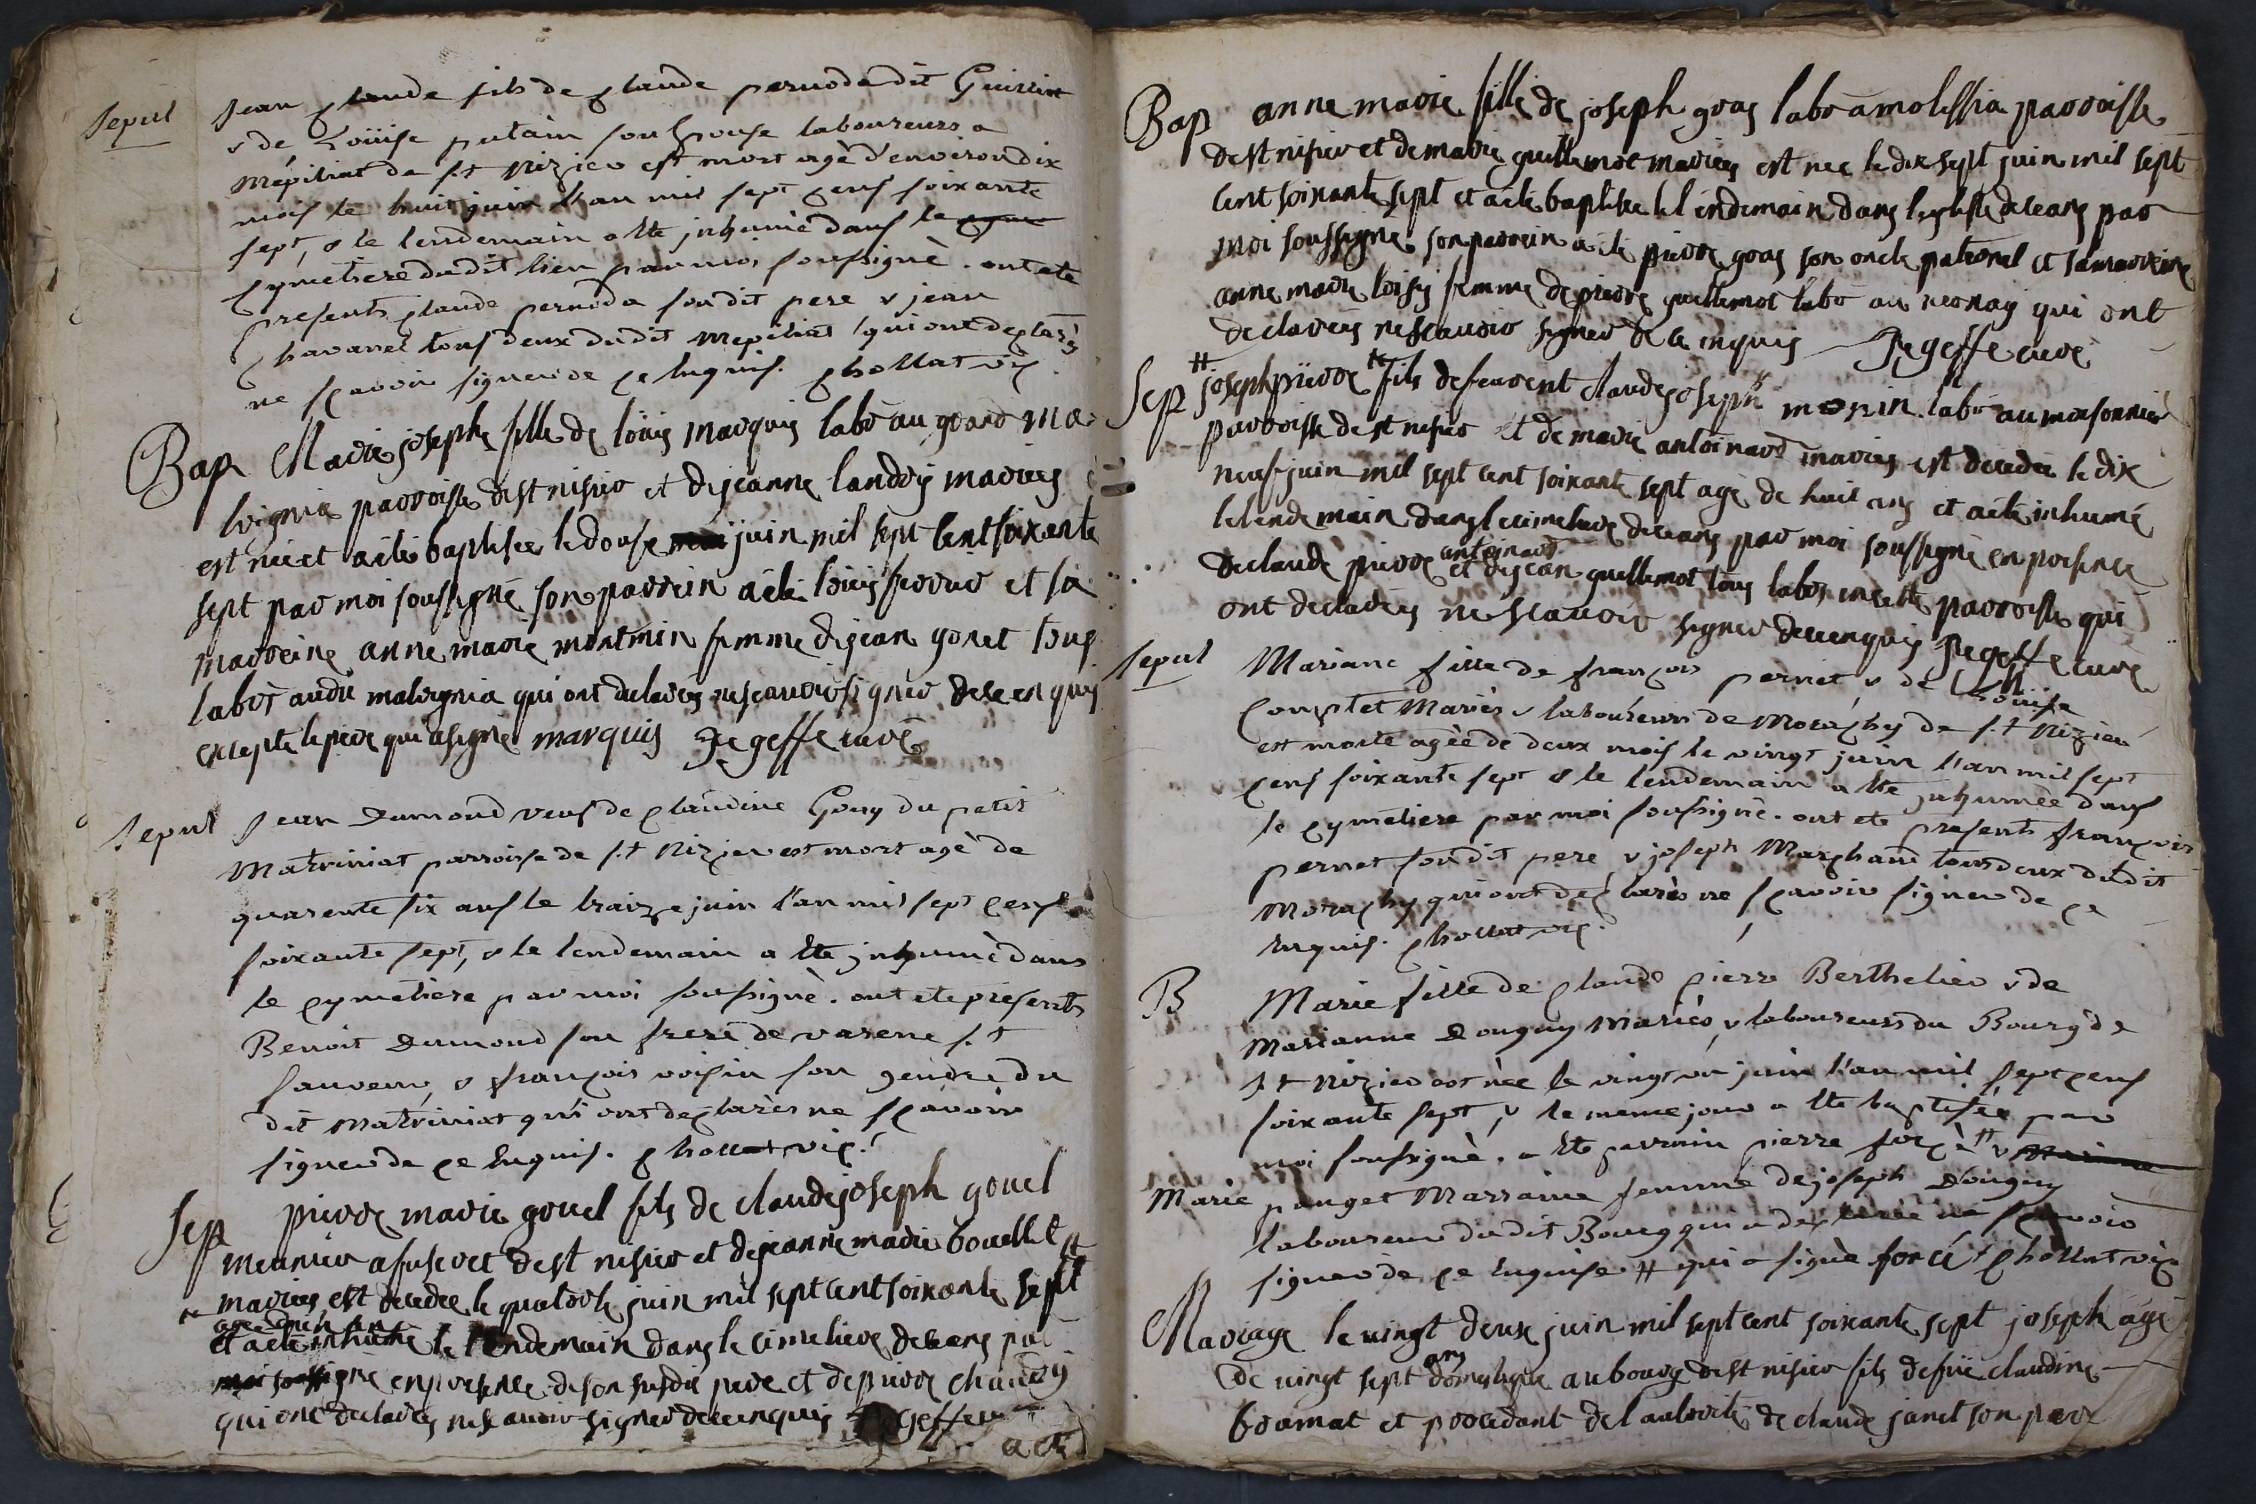 Sepul Jean Claude fils de Claude pernoda dit
& de Loüise putain son Epouse laboureurs a
Mépiliat de S.t Nizier est mort agé d'environ dix
mois le huit juin l'an mil sept cens soixante
sept, & le lendemain a ete inhumé dans le
cymetiere dudit lieu par moi soussigné. ont ete
presents Claude pernoda son dit pere & jean
chavanel tous deux dudit Mepiliat qui ont declarés
ne scavoir signer de ce Enquis. Chollat vic.
Bap Marie josephe fille de loüis marquis labr au grand ma
lvignia parroisse de st nisier et de jeanne landry mariés
est née et a été baptisée le douse juin mil sept cent soixante
sept par moi soussigné son parrein a été loüis ferrur et sa
marreine anne marie montmin femme de jean gonet tous
labrs audit malvignia qui ont declarés ne scavoir signer de ce enquis
excepté le pere qui a signé marquis Jegeffe curé
Sepul Jean Dumond veuf de Claudine Gouy du petit
Matriniat parroisse de S.t Nizier est mort agé de
quarente six ans le traize juin l'an mil sept cens
soixante sept, & le lendemain a ete inhumé dans
le cymetiere par moi soussigné. ont ete présents
Benoit Dumond son frere de varene S.t
Sauveur, & François voisin son gendre du
dit Matriniat qui ont declarés ne scavoir
signer de ce Enquis. Chollat vic.
Sep pierre marie gouel fils de claude joseph gouel
meunier a fuseret de st nisier et de jeanne marie bouellet #
mariés est decedé le quatorse juin mil sept cent soixante sept
agé d'un an
et a été inhumé le lendemain dans le cimetiere de ceans par
moi soussigné en presence de son susdit pere et de pierre chanay
qui ont declarés ne scavoir signer de ce enquis Jegeffe
a été
Bap anne marie fille de joseph goas labr a molissia parroisse
de st nisier et de marie guillemot mariés est née le dix sept juin mil sept
cent soixante sept et a été baptisée le lendemain dans l'eglise de ceans par
moi soussigné son parrein a été pierre goas son oncle paternel et sa marreine
anne marie loisy femme de pierre guillemot labr au neonay qui ont
declarés ne scavoir signer de ce inquis Jegeffe curé
Sep # joseph pierre fils defeurent claude joseph morin labr au moisonnier
parroisse de st nisier et de marie antoinard mariés est decedé le dix
neuf juin mil sept cent soixante sept agé de huit ans et a été inhumé
le lendemain dans le cimetiere de ceans par moi soussigné en presence
antoinard
de claude pierre et de jean guillemot tous labrs en cette parroisse qui
ont declarés ne scavoir signer de ce enquis Jegeffe curé
Sepul Mariane fille de françois pernet & de Loüise
Comptet Mariés & laboureurs de Morachy de S.t Nizier
est morte agée de deux mois le vingt juin l'an mil sept
cens soixante sept & le lendemain a ete inhumée dans
le cymetiere par moi soussigné. ont ete presents françois
pernet son dit pere & joseph Marchand tous deux dudit
Morachy qui ont declarés ne scavoir signer de ce
Enquis. Chollat vic.
B Marie fille de Claude pierre Berthelier & de
Marianne Douguy Mariés, & laboureurs du Bourg de
S.t Nizier est née le vingt un juin l'an mil sept cens
soixante sept, & le meme jour a ete baptisée par
moi soussigné. a ete parrain pierre forcé # &
Marie pauget Marraine femme de joseph Douguy
laboureur dudit Bourg qui a declarée ne scavoir
signer de ce Enquise # qui a signé forcé Chollat vic
Mariage le vingt deux juin mil sept cent soixante sept joseph agé
ans
de vingt sept domestique au bourg de st nisier fils de füe claudine
boamat et procedant de l'autorité de claude janet son pere